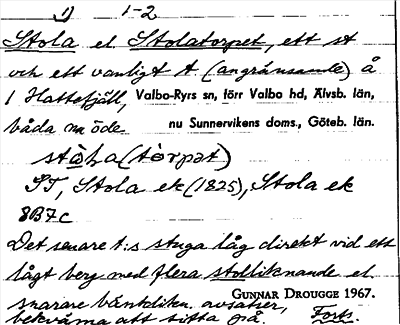 1) 1-2
Stola el Stolatorpet, ett st
och ett vanligt t (angränsande) å
1 Hattefjäll, Valbo-Ryrs sn, förr Valbo hd, Älvsb. län,
båda nu öde. nu Sunnervikens doms., Göteb. län.
(tòrpət)
ST, Stola ek (1825), Stola ek
8B7c
Det senare t:s stuga låg direkt vid ett
lågt berg med flera stolliknande el
snarare bänklikn. avsatser,
GUNNAR DROUGGE 1967.
bekväma att sitta på. Forts.